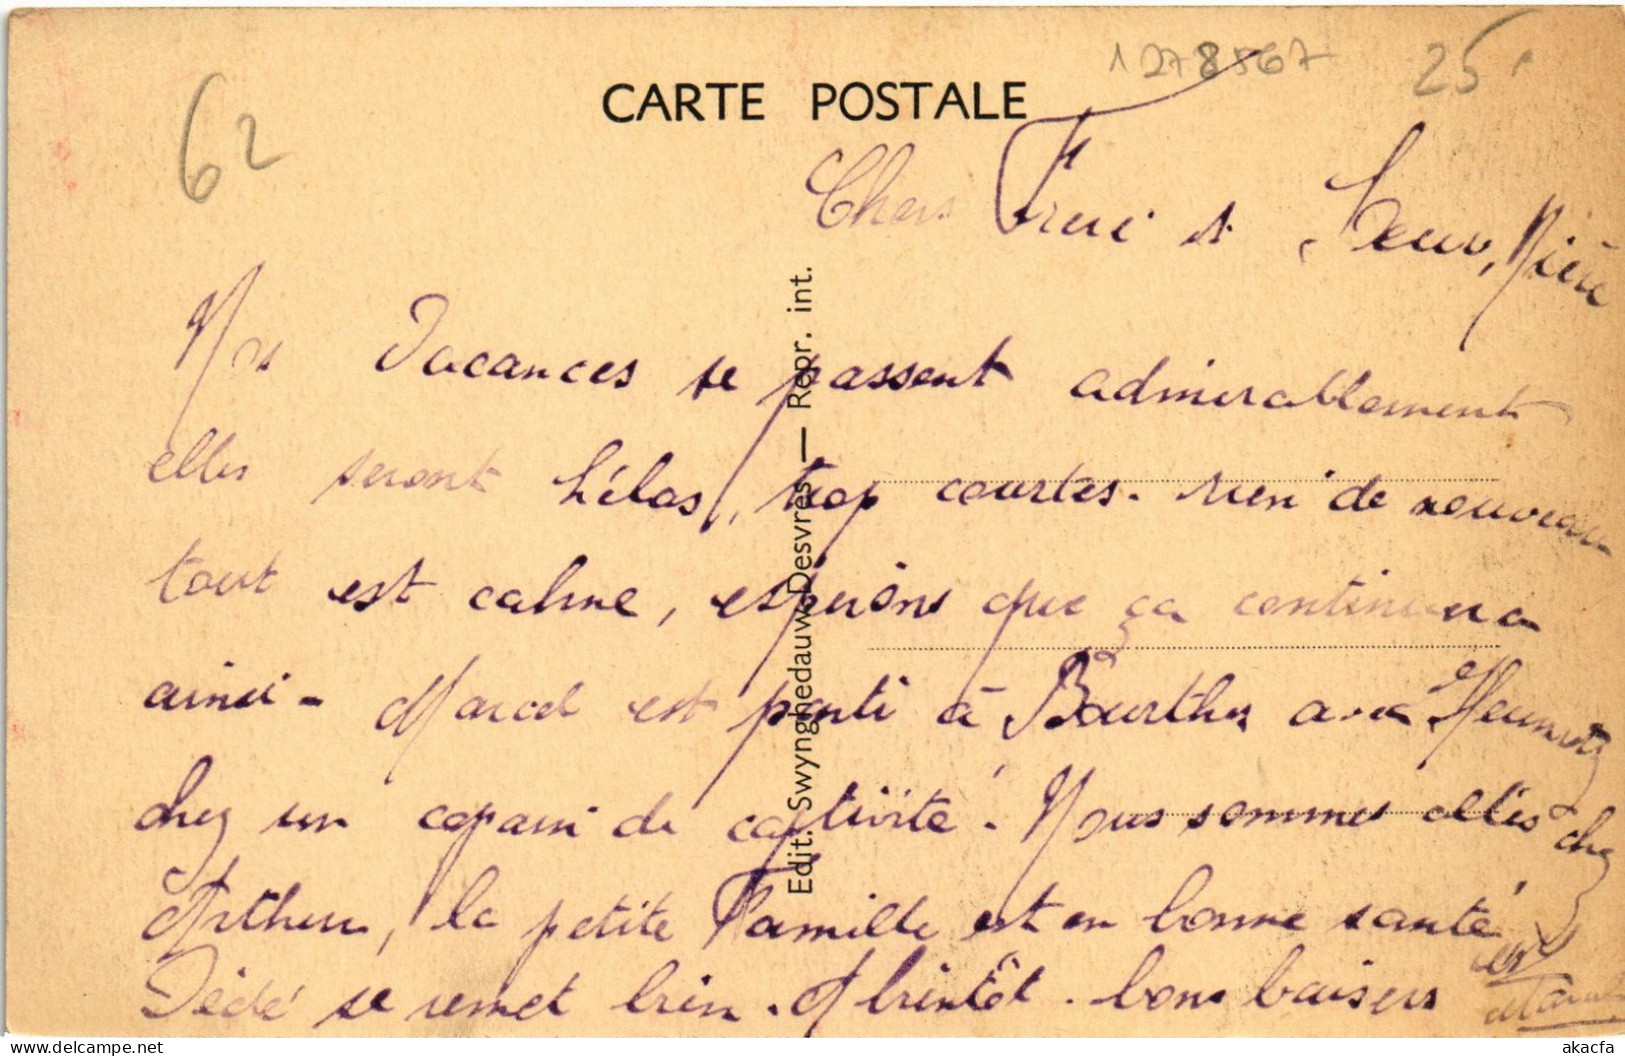 1278567
25
62
CARTE POSTALE
Chers Frère et Sœur, Nièce
Nos Vacances se passent admirablement
elles seront hélas, trop courtes. rien de nouveau
tout est calme, espérons que ça continuera
ainsi - Marcel est parti à Bourthes avec
chez un copain de captivité. Nous sommes allés chez
Arthur, la petite Famille est en bonne santé
Dédé se remet bien. A bientôt. bons baisers
Edit. Swynghedauw Desvres — Repr. int.
akacfa